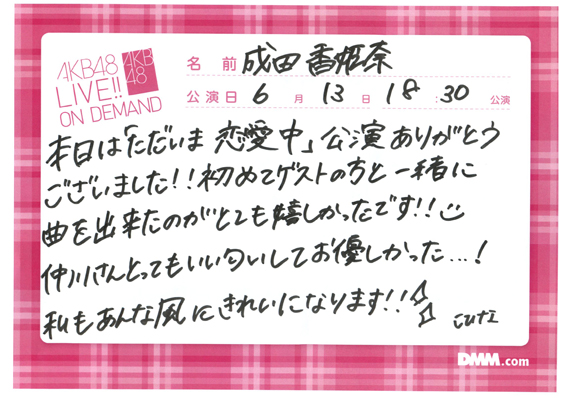 AKB48
LIVE!!
ON DEMAND
AKB
48
名前 成田香姫奈
公演日 6月13日 18:30 公演
本日は「ただいま 恋愛中」公演ありがとう
ございました!!初めてゲストの方と一緒に
曲を出来たのがとても嬉しかったです!!
仲川さんとってもいい匂いしてお優しかった...!
私もあんな風にきれいになります!!
DMM.com